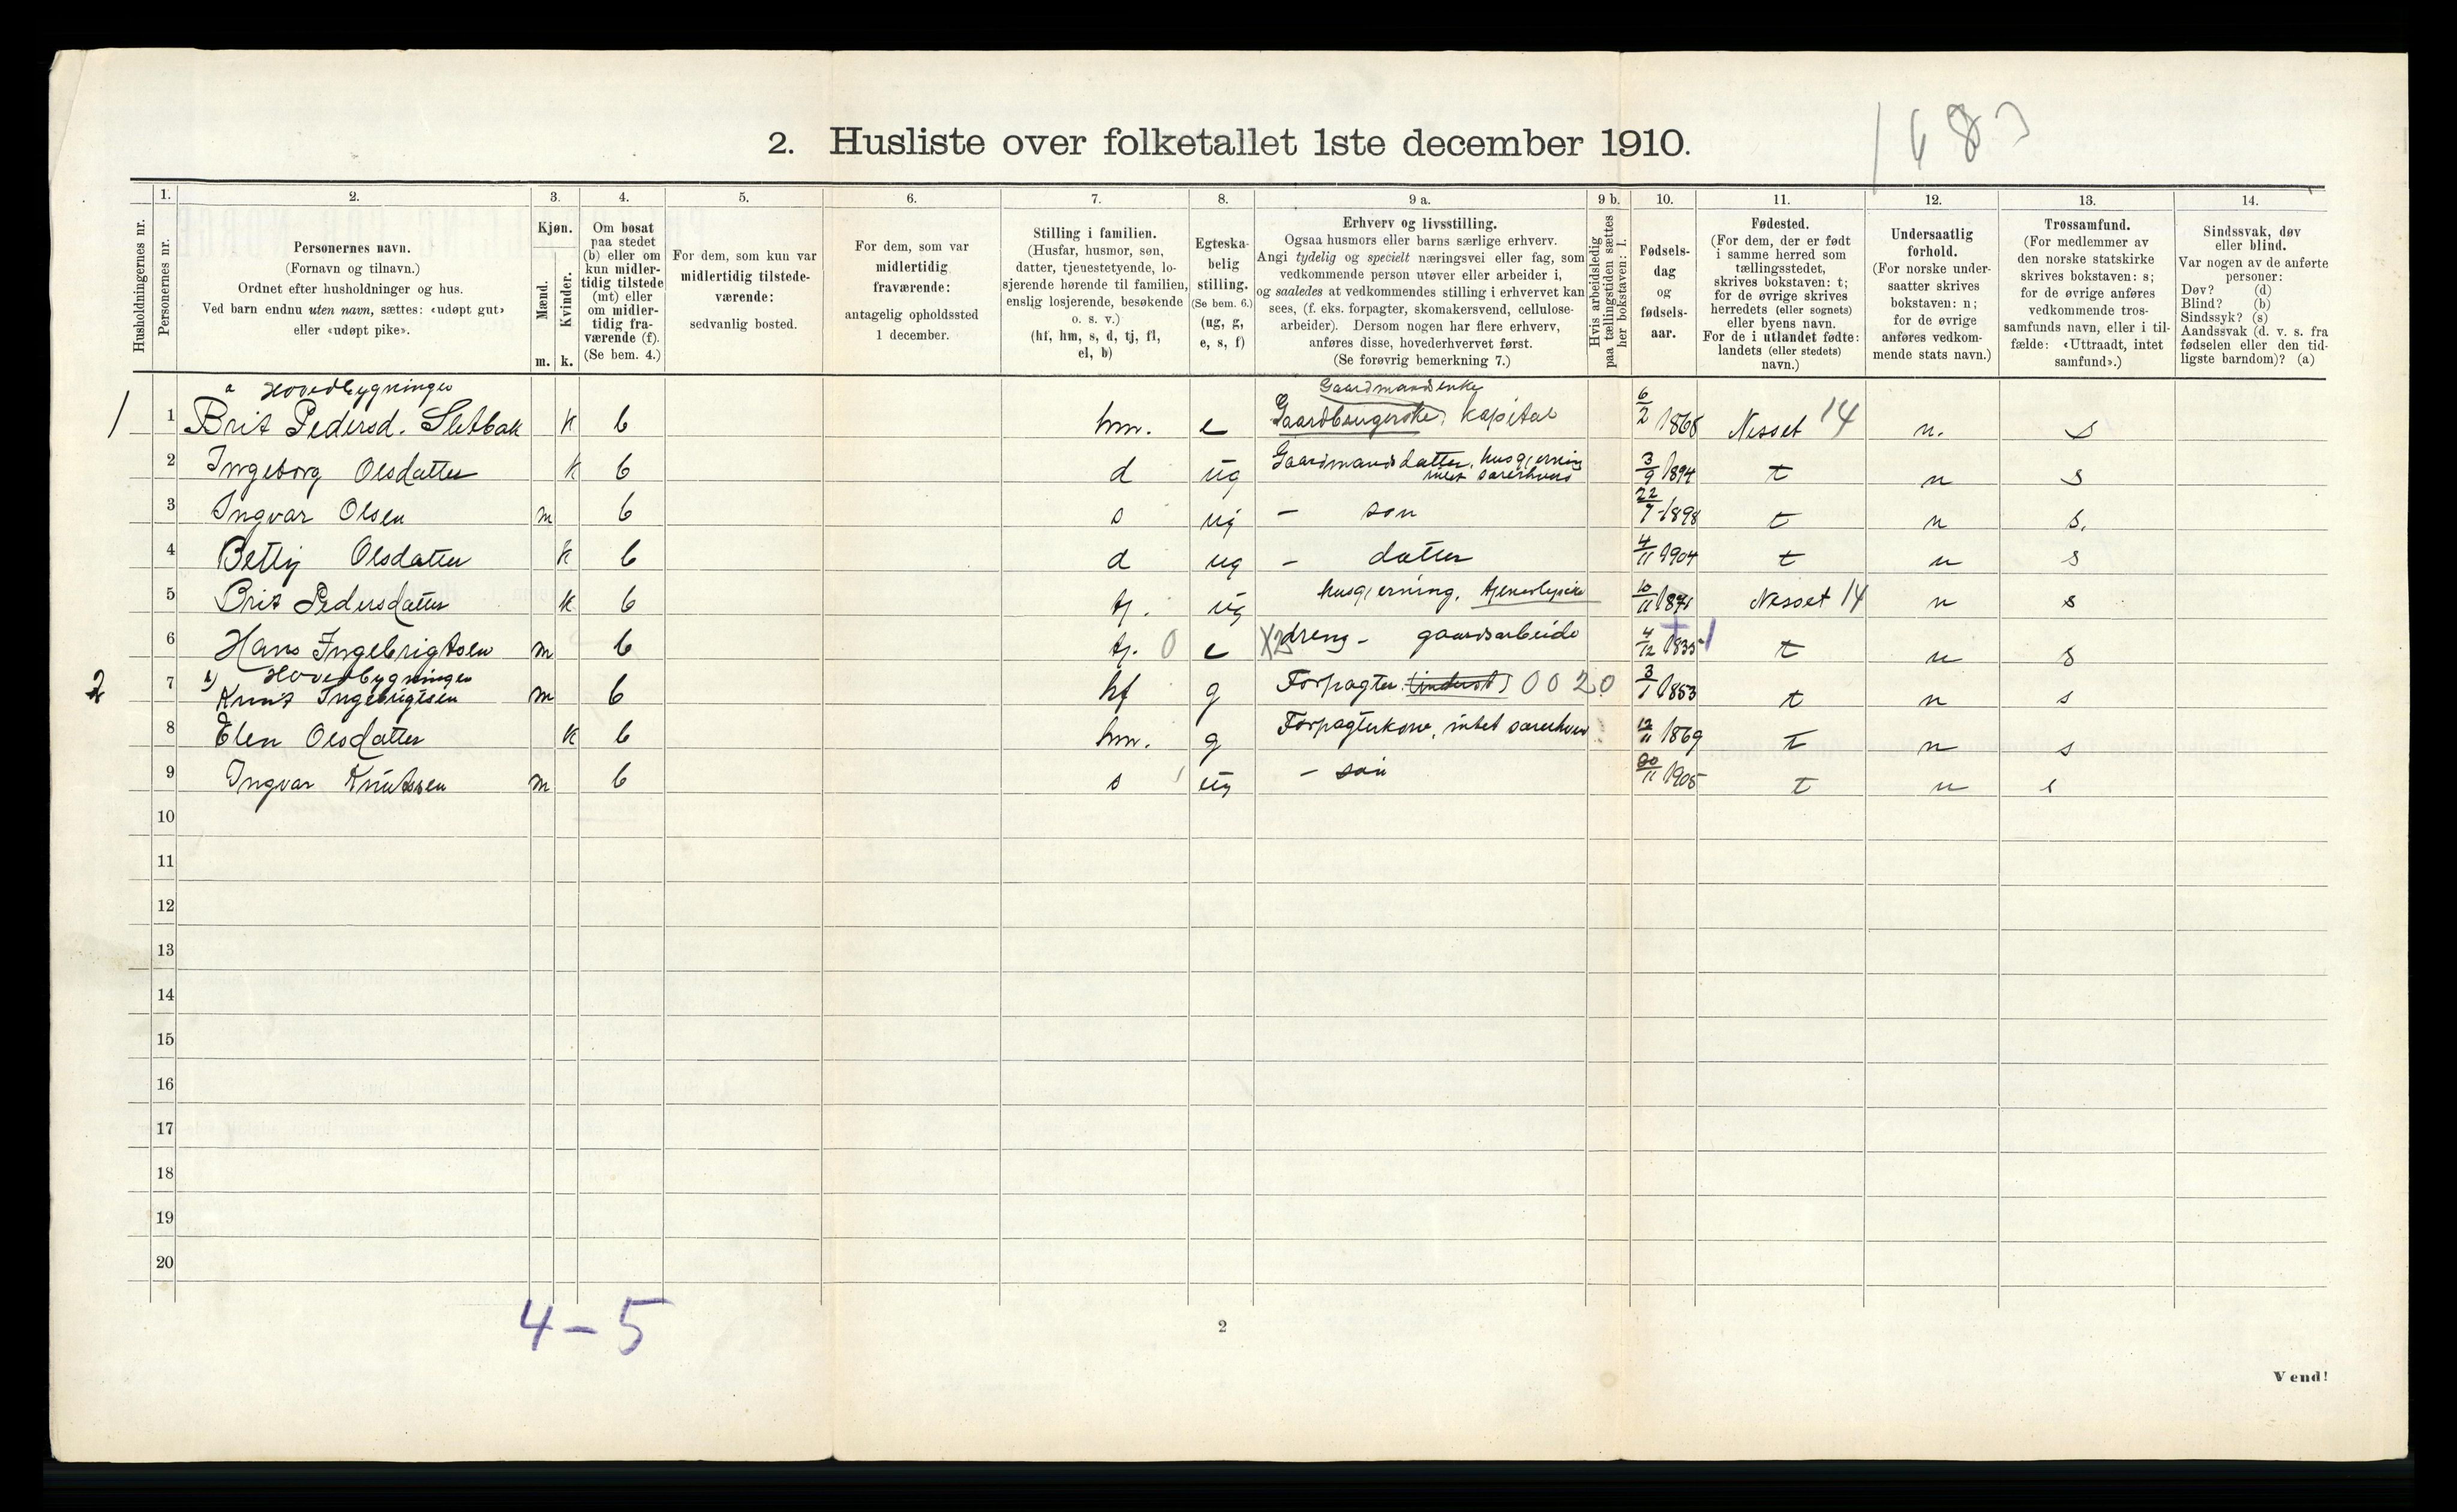 2. Husliste over folketallet 1ste december 1910.
1683
Husholdningernes nr.
1.
Personernes nr.
2.
Personernes navn.
(Fornavn og tilnavn.)
Ordnet efter husholdninger og hus.
Ved barn endnu uten navn, sættes: «udøpt gut»
eller «udøpt pike».
3.
Kjøn.
Mænd.
Kvinder.
m. k.
4.
Om bosat
paa stedet
(b) eller om
kun midler-
tidig tilstede
(mt) eller
om midler-
tidig fra-
værende (f).
(Se bem. 4.)
5.
For dem, som kun var
midlertidig tilstede-
værende:
sedvanlig bosted.
6.
For dem, som var
midlertidig
fraværende:
antagelig opholdssted
1 december.
7.
Stilling i familien.
(Husfar, husmor, søn,
datter, tjenestetyende, lo-
sjerende hørende til familien,
enslig losjerende, besøkende
o. s. v.)
(hf, hm, s, d, tj, fl,
el, b)
8.
Egteska-
belig
stilling.
(Se bem. 6.)
(ug, g,
e, s, f)
9 a.
Erhverv og livsstilling.
Ogsaa husmors eller barns særlige erhverv.
Angi tydelig og specielt næringsvei eller fag, som
vedkommende person utøver eller arbeider i,
og saaledes at vedkommendes stilling i erhvervet kan
sees, (f. eks. forpagter, skomakersvend, cellulose-
arbeider). Dersom nogen har flere erhverv,
anføres disse, hovederhvervet først.
(Se forøvrig bemerkning 7.)
9 b.
Hvis arbeidsledig
paa tællingstiden sættes
her bokstaven: l.
10.
Fødsels-
dag
og
fødsels-
aar.
11.
Fødested.
(For dem, der er født
i samme herred som
tællingsstedet,
skrives bokstaven: t;
for de øvrige skrives
herredets (eller sognets)
eller byens navn.
For de i utlandet fødte:
landets (eller stedets)
navn.)
12.
Undersaatlig
forhold.
(For norske under-
saatter skrives
bokstaven: n;
for de øvrige
anføres vedkom-
mende stats navn.)
13.
Trossamfund.
(For medlemmer av
den norske statskirke
skrives bokstaven: s;
for de øvrige anføres
vedkommende tros-
samfunds navn, eller i til-
fælde: «Uttraadt, intet
samfund».)
14.
Sindssvak, døv
eller blind.
Var nogen av de anførte
personer:
Døv? (d)
Blind? (b)
Sindssyk? (s)
Aandssvak (d. v. s. fra
fødselen eller den tid-
ligste barndom)? (a)
a Hovedbygningen Gaardmandsenke
1 1 Brit Pedersd. Sletbak k b hm. e Gaardbrugerske, Kapital 6/2 1868 Nesset 14 n. s
2 Ingeborg Olsdatter k b d ug Gaardmandsdatter, husgjerning 3/9 1894 t n s
intet særerhverv
3 Ingvar Olsen m b s ug - søn 22/7 1898 t n s.
4 Betty Olsdatter k b d ug - datter 4/11 1904 t n s
5 Brit Pedersdatter k b tj. ug husgjerning, tjenestepike 10/11 1871 Nesset 14 n s
6 Hans Ingebrigtsen m b tj. 0 e X2 dreng - gaardsarbeide 4/12 1835 t n s
b) Hovedbygningen
2 7 Knut Ingebrigtsen m b hf g Forpagter (inderst) 0 0 2 0 3/1 1853 t n s
8 Elen Olsdatter k b hm. g Forpagterkone, intet særerhverv 12/11 1869 t n s
9 Ingvar Knutsen m b s ug - søn 20/11 1905 t n s
10
11
12
13
14
15
16
17
18
19
20
4-5
2
Vend!